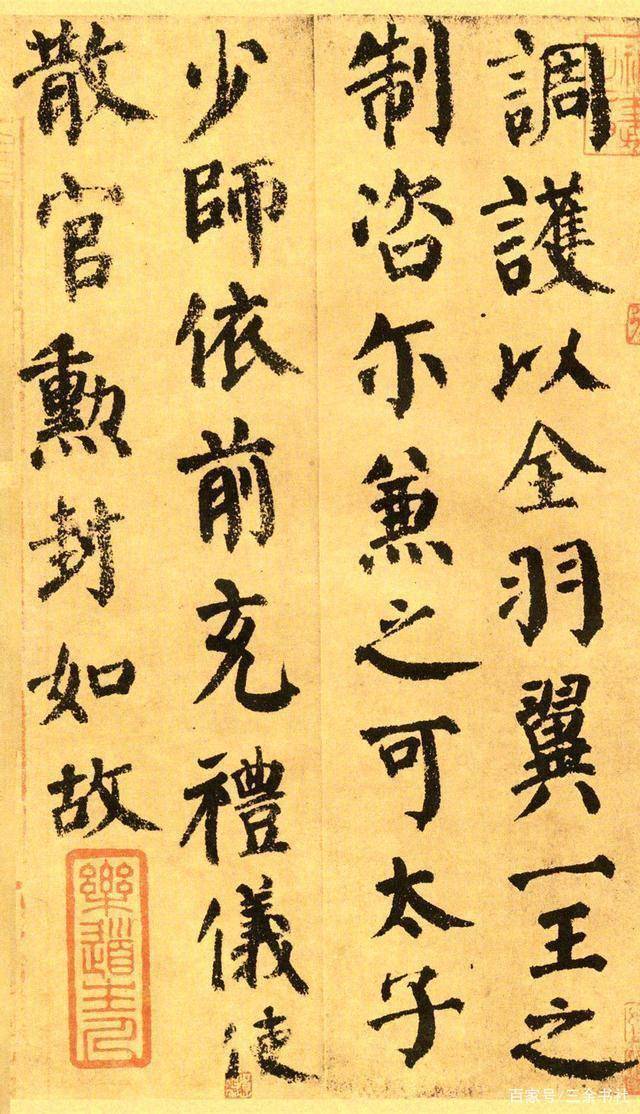 調護以全羽翼一王之
制咨尔兼之可太子
少師依前充禮儀使
散官勲封如故
樂道主人
百家号/三余书社